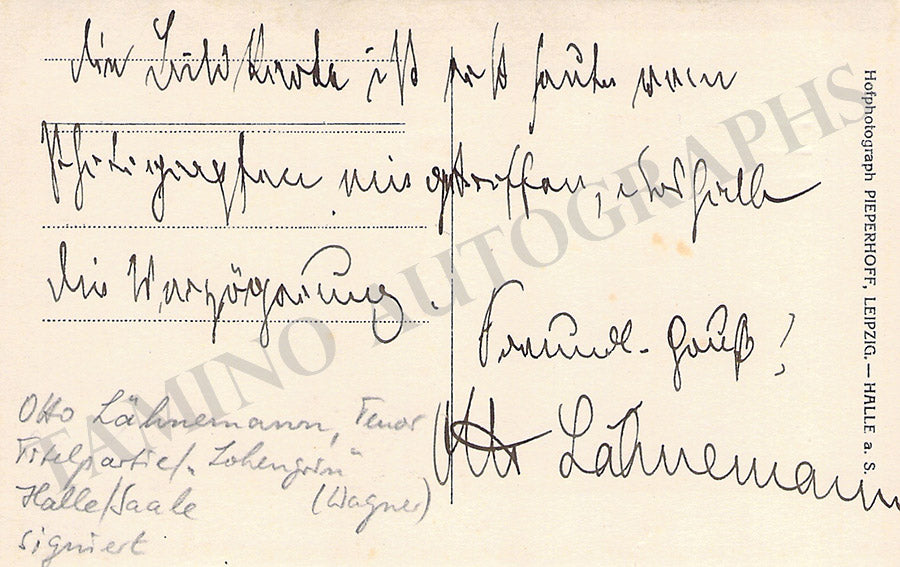 die Bildkarte ist erst heute vom
Photographen eingetroffen, deshalb
die Verzögerung.
Freundl. Gruß!
Otto Lähnemann
Otto Lähnemann, Tenor
Titelpartie/„Lohengrin"
Halle/Saale (Wagner)
signiert
Hofphotograph PIEPERHOFF, LEIPZIG. — HALLE a. S.
TAMINO AUTOGRAPHS